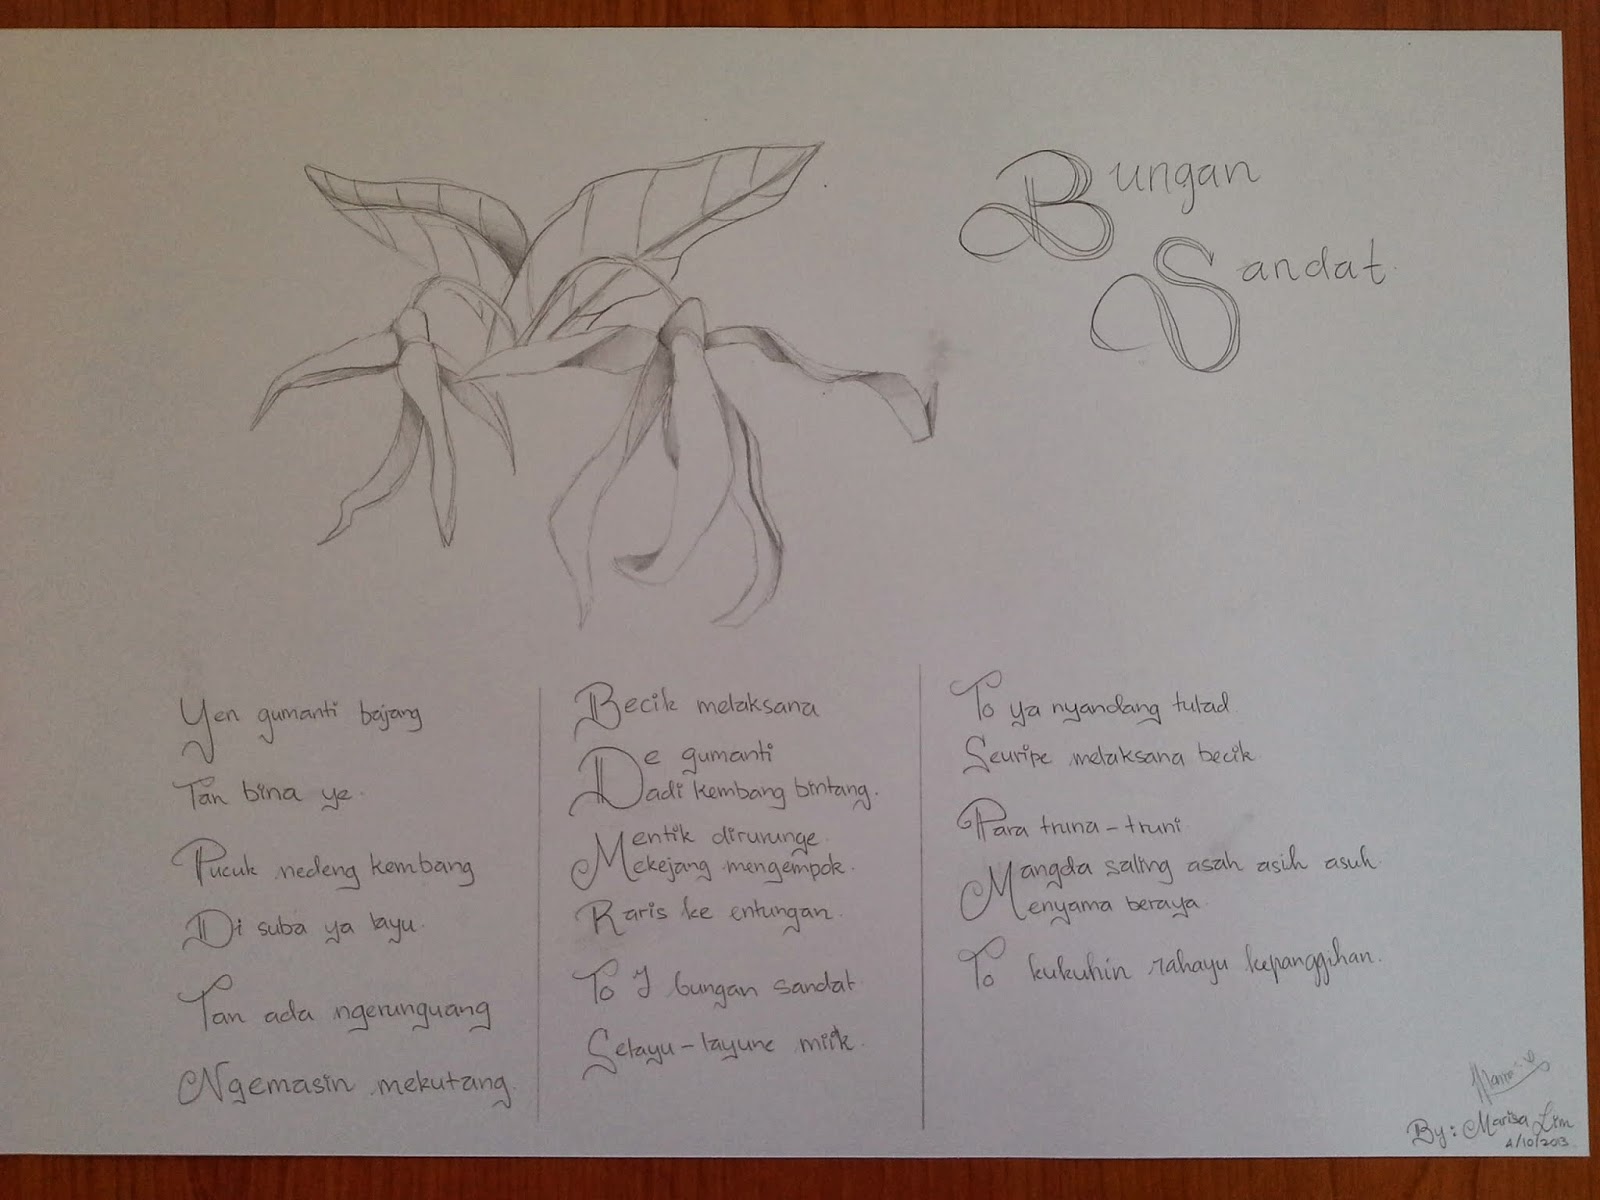 Bungan
Sandat
Yen gumanti bajang
Tan bina ye
Pucuk nedeng kembang
Di suba ya layu
Tan ada ngerunguang
Ngemasin mekutang
Becik melaksana
De gumanti
Dadi kembang bintang
Mentik dirurunge
Mekejang mengempok
Raris ke entungan
To I bungan sandat
Selayu-layune miik
To ya nyandang tulad
Seuripe melaksana becik
Para truna-truni
Mangda saling asah asih asuh
Menyama beraya
To kukuhin rahayu kepanggihan
By: Marisa Lim